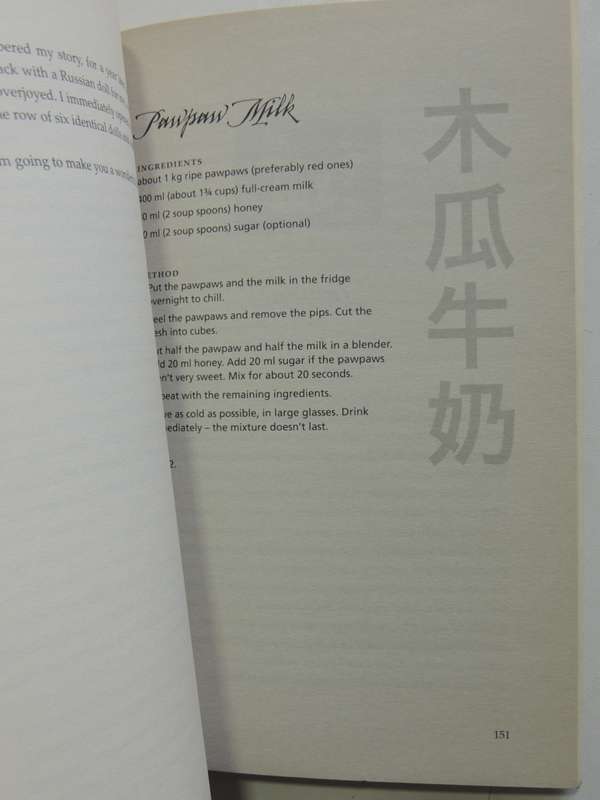 my story, for a year
with a Russian doll for
overjoyed. I immediately
row of six identical dolls
going to make you a
Pawpaw Milk
木瓜牛奶
INGREDIENTS
about 1 kg ripe pawpaws (preferably red ones)
400 ml (about 1¾ cups) full-cream milk
0 ml (2 soup spoons) honey
0 ml (2 soup spoons) sugar (optional)
ETHOD
Put the pawpaws and the milk in the fridge
overnight to chill.
eel the pawpaws and remove the pips. Cut the
esh into cubes.
ut half the pawpaw and half the milk in a blender.
dd 20 ml honey. Add 20 ml sugar if the pawpaws
n't very sweet. Mix for about 20 seconds.
peat with the remaining ingredients.
ve as cold as possible, in large glasses. Drink
mediately – the mixture doesn't last.
2.
151